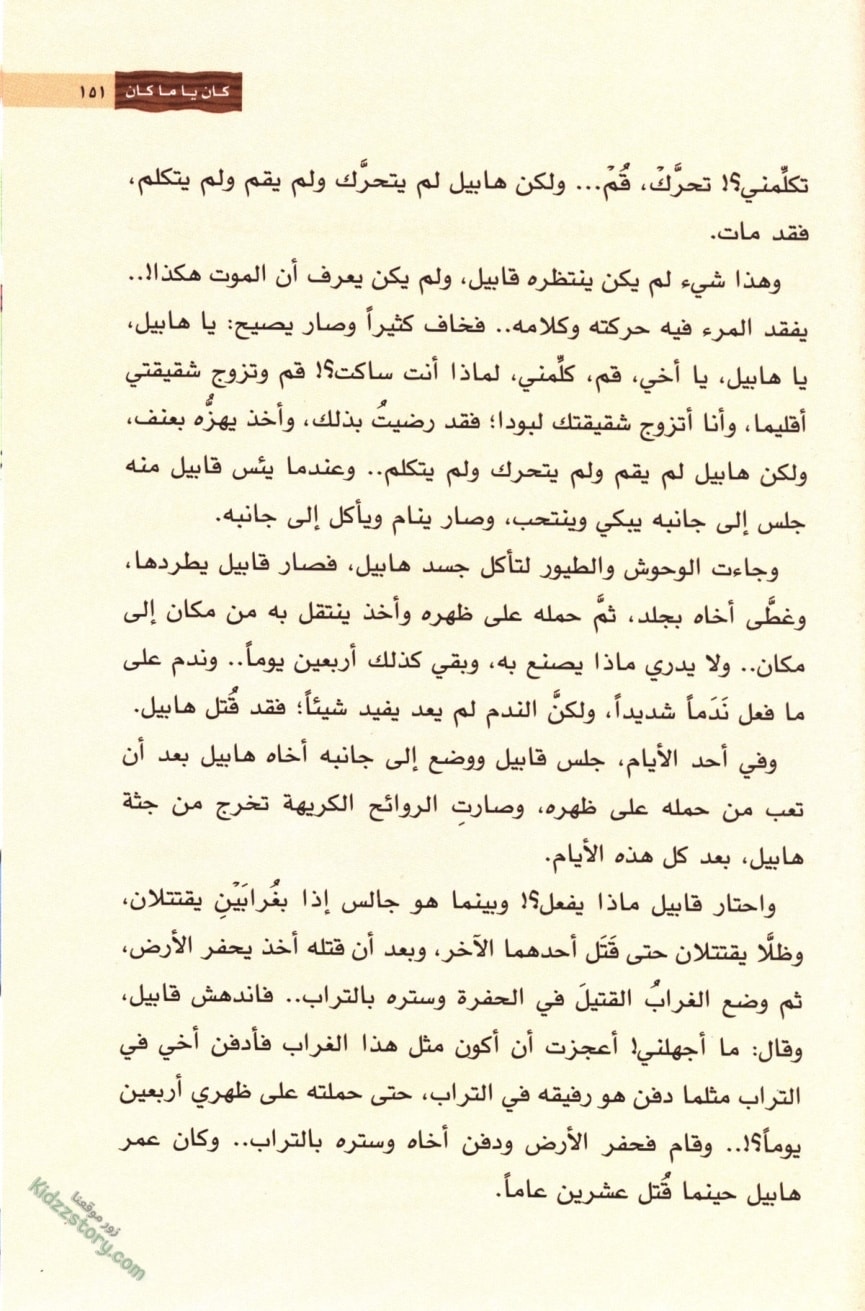 كان يا ما كان ١٥١
تكلِّمني؟! تحرَّكْ، قُمْ... ولكن هابيل لم يتحرَّك ولم يقم ولم يتكلم،
فقد مات.
وهذا شيء لم يكن ينتظره قابيل، ولم يكن يعرف أن الموت هكذا!..
يفقد المرء فيه حركته وكلامه.. فخاف كثيراً وصار يصيح: يا هابيل،
يا هابيل، يا أخي، قم، كلِّمني، لماذا أنت ساكت؟! قم وتزوج شقيقتي
أقليما، وأنا أتزوج شقيقتك لبودا؛ فقد رضيتُ بذلك، وأخذ يهزُّه بعنف،
ولكن هابيل لم يقم ولم يتحرك ولم يتكلم.. وعندما يئس قابيل منه
جلس إلى جانبه يبكي وينتحب، وصار ينام ويأكل إلى جانبه.
وجاءت الوحوش والطيور لتأكل جسد هابيل، فصار قابيل يطردها،
وغطَّى أخاه بجلد، ثمَّ حمله على ظهره وأخذ ينتقل به من مكان إلى
مكان.. ولا يدري ماذا يصنع به، وبقي كذلك أربعين يوماً.. وندم على
ما فعل نَدَماً شديداً، ولكنَّ الندم لم يعد يفيد شيئاً؛ فقد قُتل هابيل.
وفي أحد الأيام، جلس قابيل ووضع إلى جانبه أخاه هابيل بعد أن
تعب من حمله على ظهره، وصارتِ الروائح الكريهة تخرج من جثة
هابيل، بعد كل هذه الأيام.
واحتار قابيل ماذا يفعل؟! وبينما هو جالس إذا بغُرابَيْنِ يقتتلان،
وظلَّا يقتتلان حتى قَتَل أحدهما الآخر، وبعد أن قتله أخذ يحفر الأرض،
ثم وضع الغرابُ القتيلَ في الحفرة وستره بالتراب.. فاندهش قابيل،
وقال: ما أجهلني! أعجزت أن أكون مثل هذا الغراب فأدفن أخي في
التراب مثلما دفن هو رفيقه في التراب، حتى حملته على ظهري أربعين
يوماً؟!.. وقام فحفر الأرض ودفن أخاه وستره بالتراب.. وكان عمر
هابيل حينما قُتل عشرين عاماً.
زور موقعنا
Kidzzstory.com